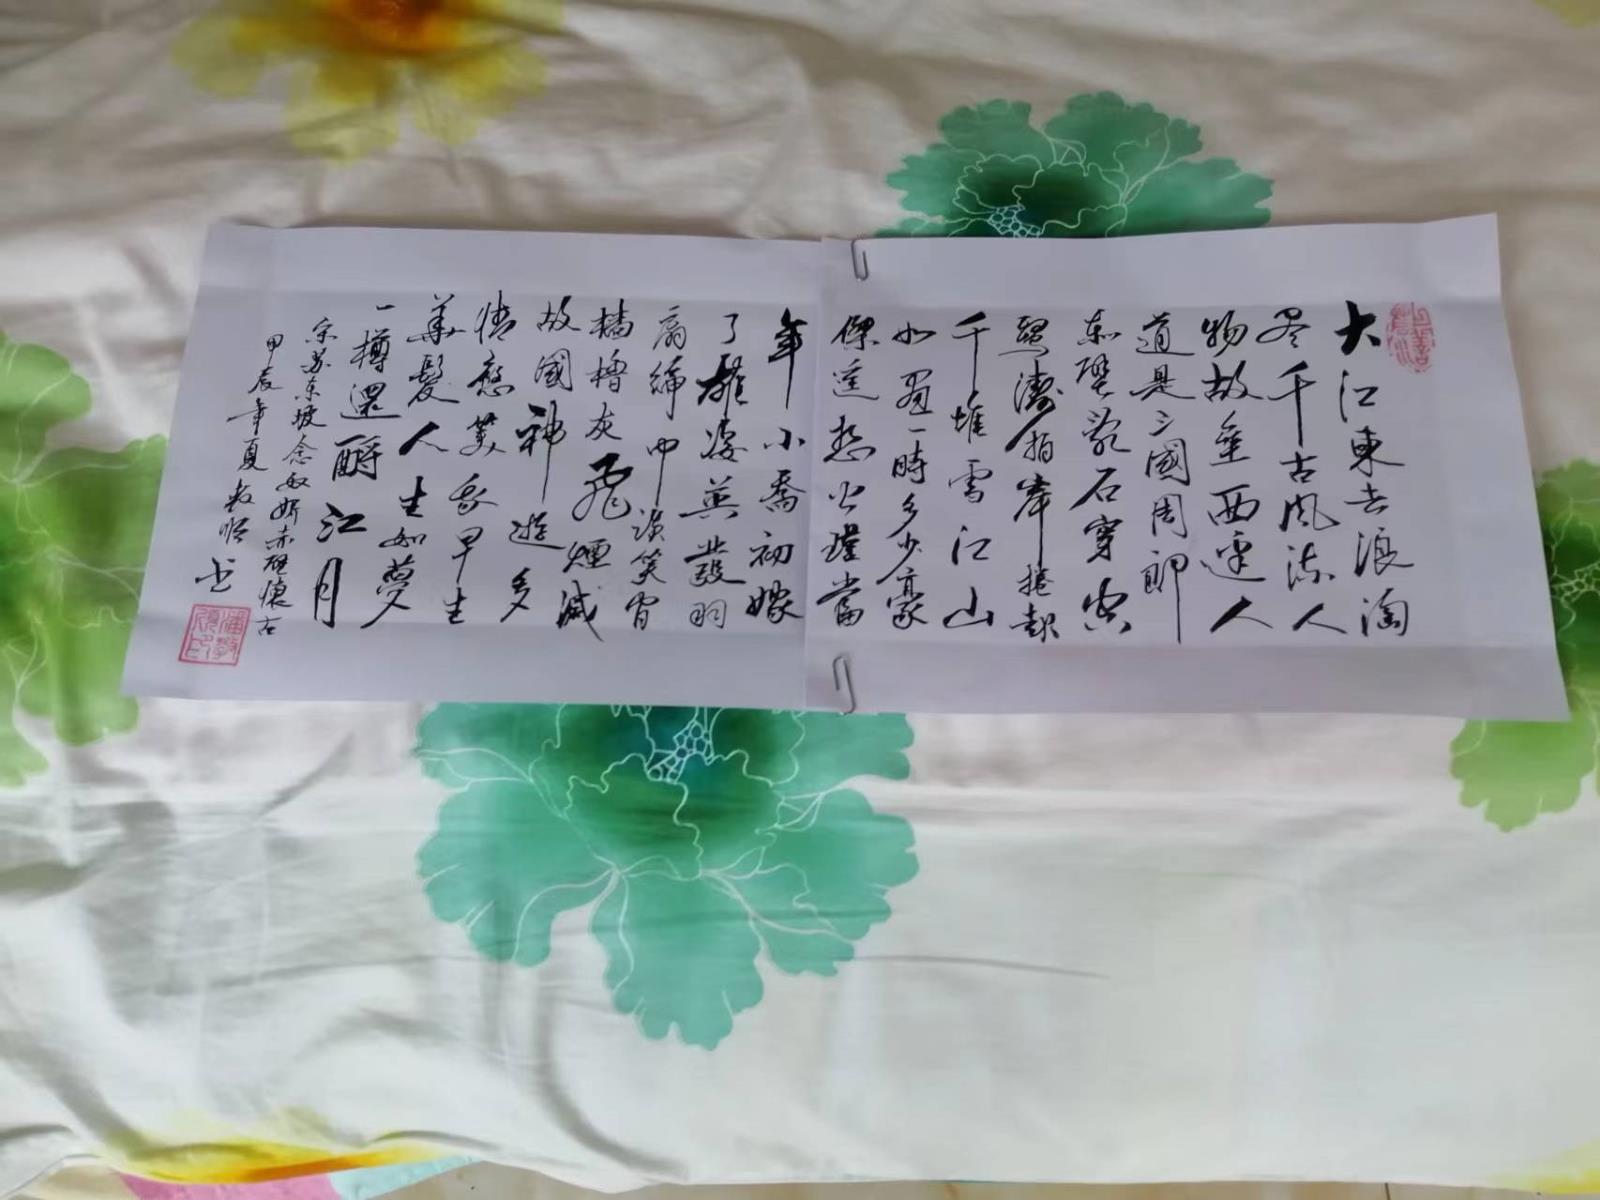 大江東去浪淘
尽千古風流人
物故垒西邊人
道是三國周郎
赤壁乱石穿空
驚濤拍岸捲起
千堆雪江山
如畫一時多少豪
傑遥想公瑾當
年小喬初嫁
了雄姿英發羽
扇綸巾談笑间
樯櫓灰飛煙滅
故國神遊多
情應笑我早生
華髮人生如夢
一樽還酹江月
宋苏东坡念奴娇赤壁懷古
甲辰年夏教順
书
潘教順印